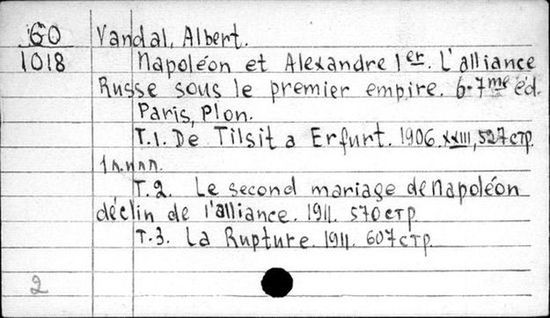 60 Vandal, Albert.
1018 Napoléon et Alexandre 1er. L'alliance
Russe sous le premier empire. 6-7me éd.
Paris, Plon.
T.1. De Tilsit a Erfurt. 1906. XXIII, 527 стр.
T.2. Le second mariage de Napoléon
déclin de l'alliance. 1911. 570 стр
T.3. La Rupture. 1911. 607 стр
2